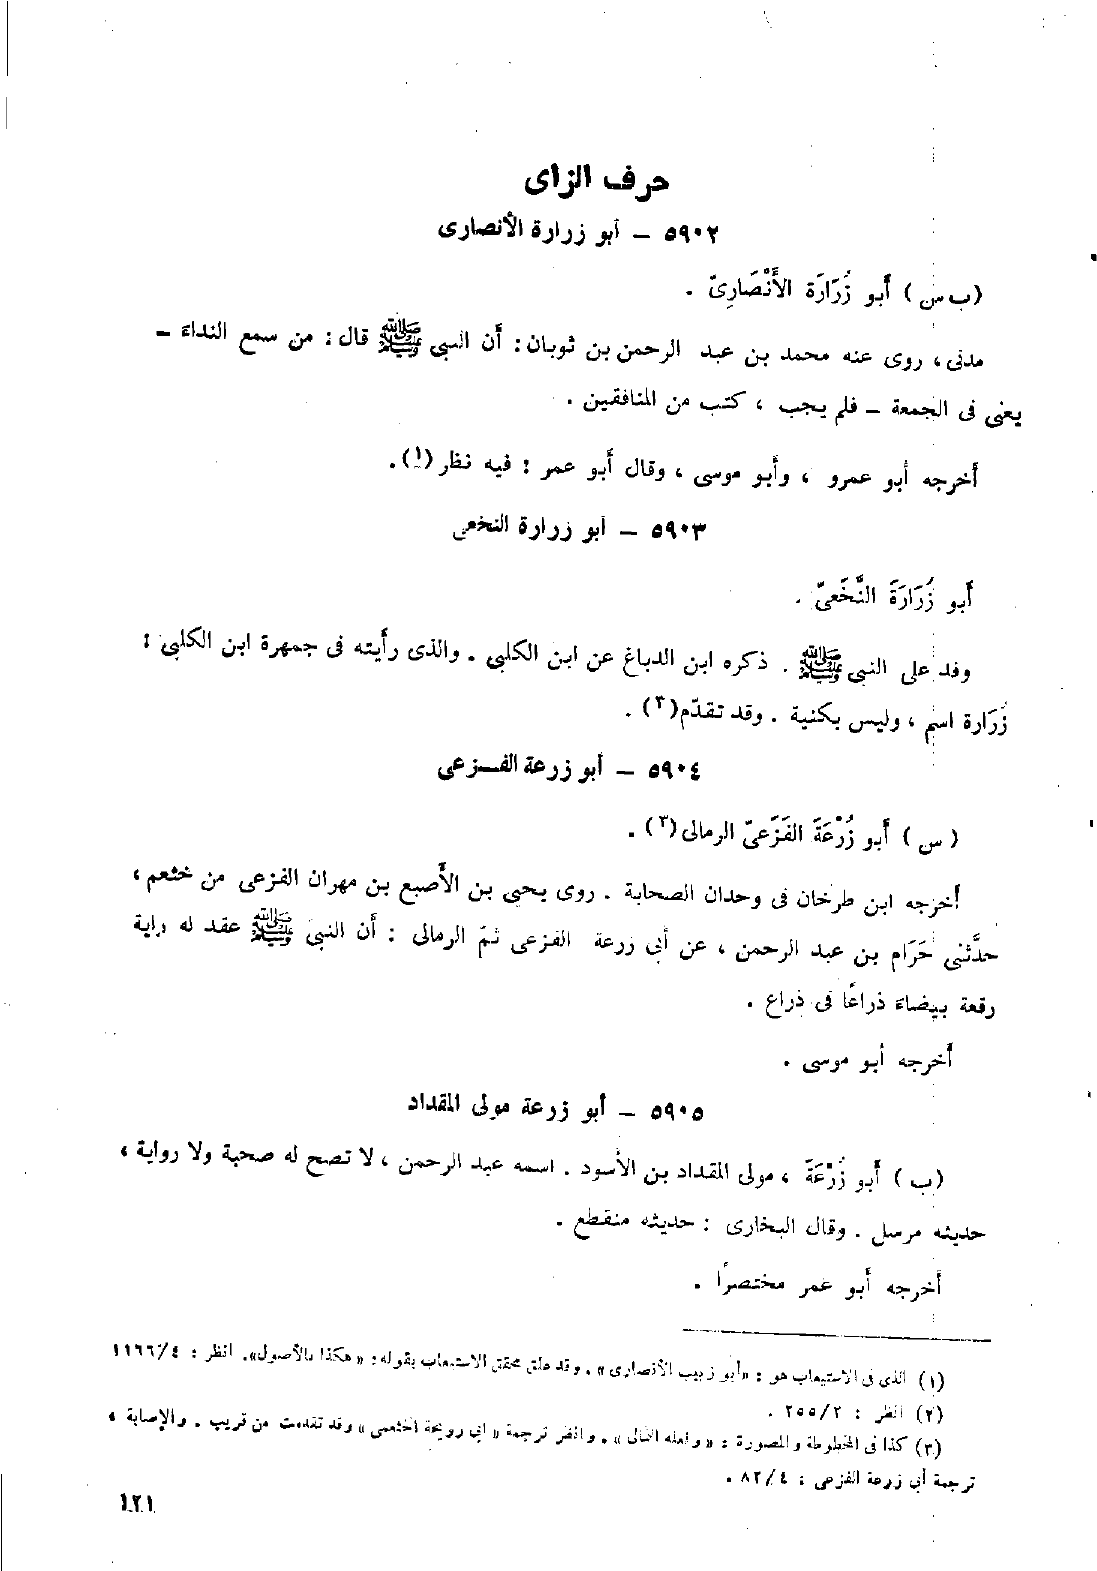 حرف الزاى
٥٩٠٢ – أبو زرارة الأنصارى
(ب س) أَبو زُرَارَة الأَنْصَارِىّ .
مدنى ، روى عنه محمد بن عبد الرحمن بن ثوبان : أن النبى ﷺ قال : من سمع النداء –
يعنى فى الجمعة – فلم يجب ، كتب من المنافقين .
أخرجه أبو عمرو ، وأبو موسى ، وقال أبو عمر : فيه نظر (١) .
٥٩٠٣ – أبو زرارة النخعى
أَبو زُرَارَة النَّخَعىّ .
وفد على النبى ﷺ . ذكره ابن الدباغ عن ابن الكلبى . والذى رأيته فى جمهرة ابن الكلبى :
زُرَارة اسم ، وليس بكنية . وقد تقدّم (٢) .
٥٩٠٤ – أبو زرعة الفزعى
(س) أَبو زُرْعَةَ الفَزَعىّ الرمالى (٣) .
أخرجه ابن طرخان فى وحدان الصحابة . روى يحيى بن الأصبع بن مهران الفزعى من خثعم ،
حدَّثنى حَرَام بن عبد الرحمن ، عن أبى زرعة الفزعى ثمّ الرمالى : أن النبى ﷺ عقد له راية
رقعة بيضاء ذراعًا فى ذراع .
أخرجه أبو موسى .
٥٩٠٥ – أبو زرعة مولى المقداد
(ب) أَبو زُرْعَةَ ، مولى المقداد بن الأسود . اسمه عبد الرحمن ، لا تصح له صحبة ولا رواية ،
حديثه مرسل . وقال البخارى : حديثه منقطع .
أخرجه أبو عمر مختصرًا .
(١) الذى فى الاستيعاب هو : «أبو زبيب الأنصارى» . وقد علق محقق الاستيعاب بقوله : «هكذا بالأصول». انظر : ١٦٦٢/٤
(٢) انظر : ٢٥٥/٢ .
(٣) كذا فى المخطوطة والمصورة : «ولعله المالى» . وانظر ترجمة «أبى رويحة الخثعمى» وقد تقدمت من قريب . والإصابة ،
ترجمة أبى زرعة الفزعى : ٨٢/٤ .
١٢١